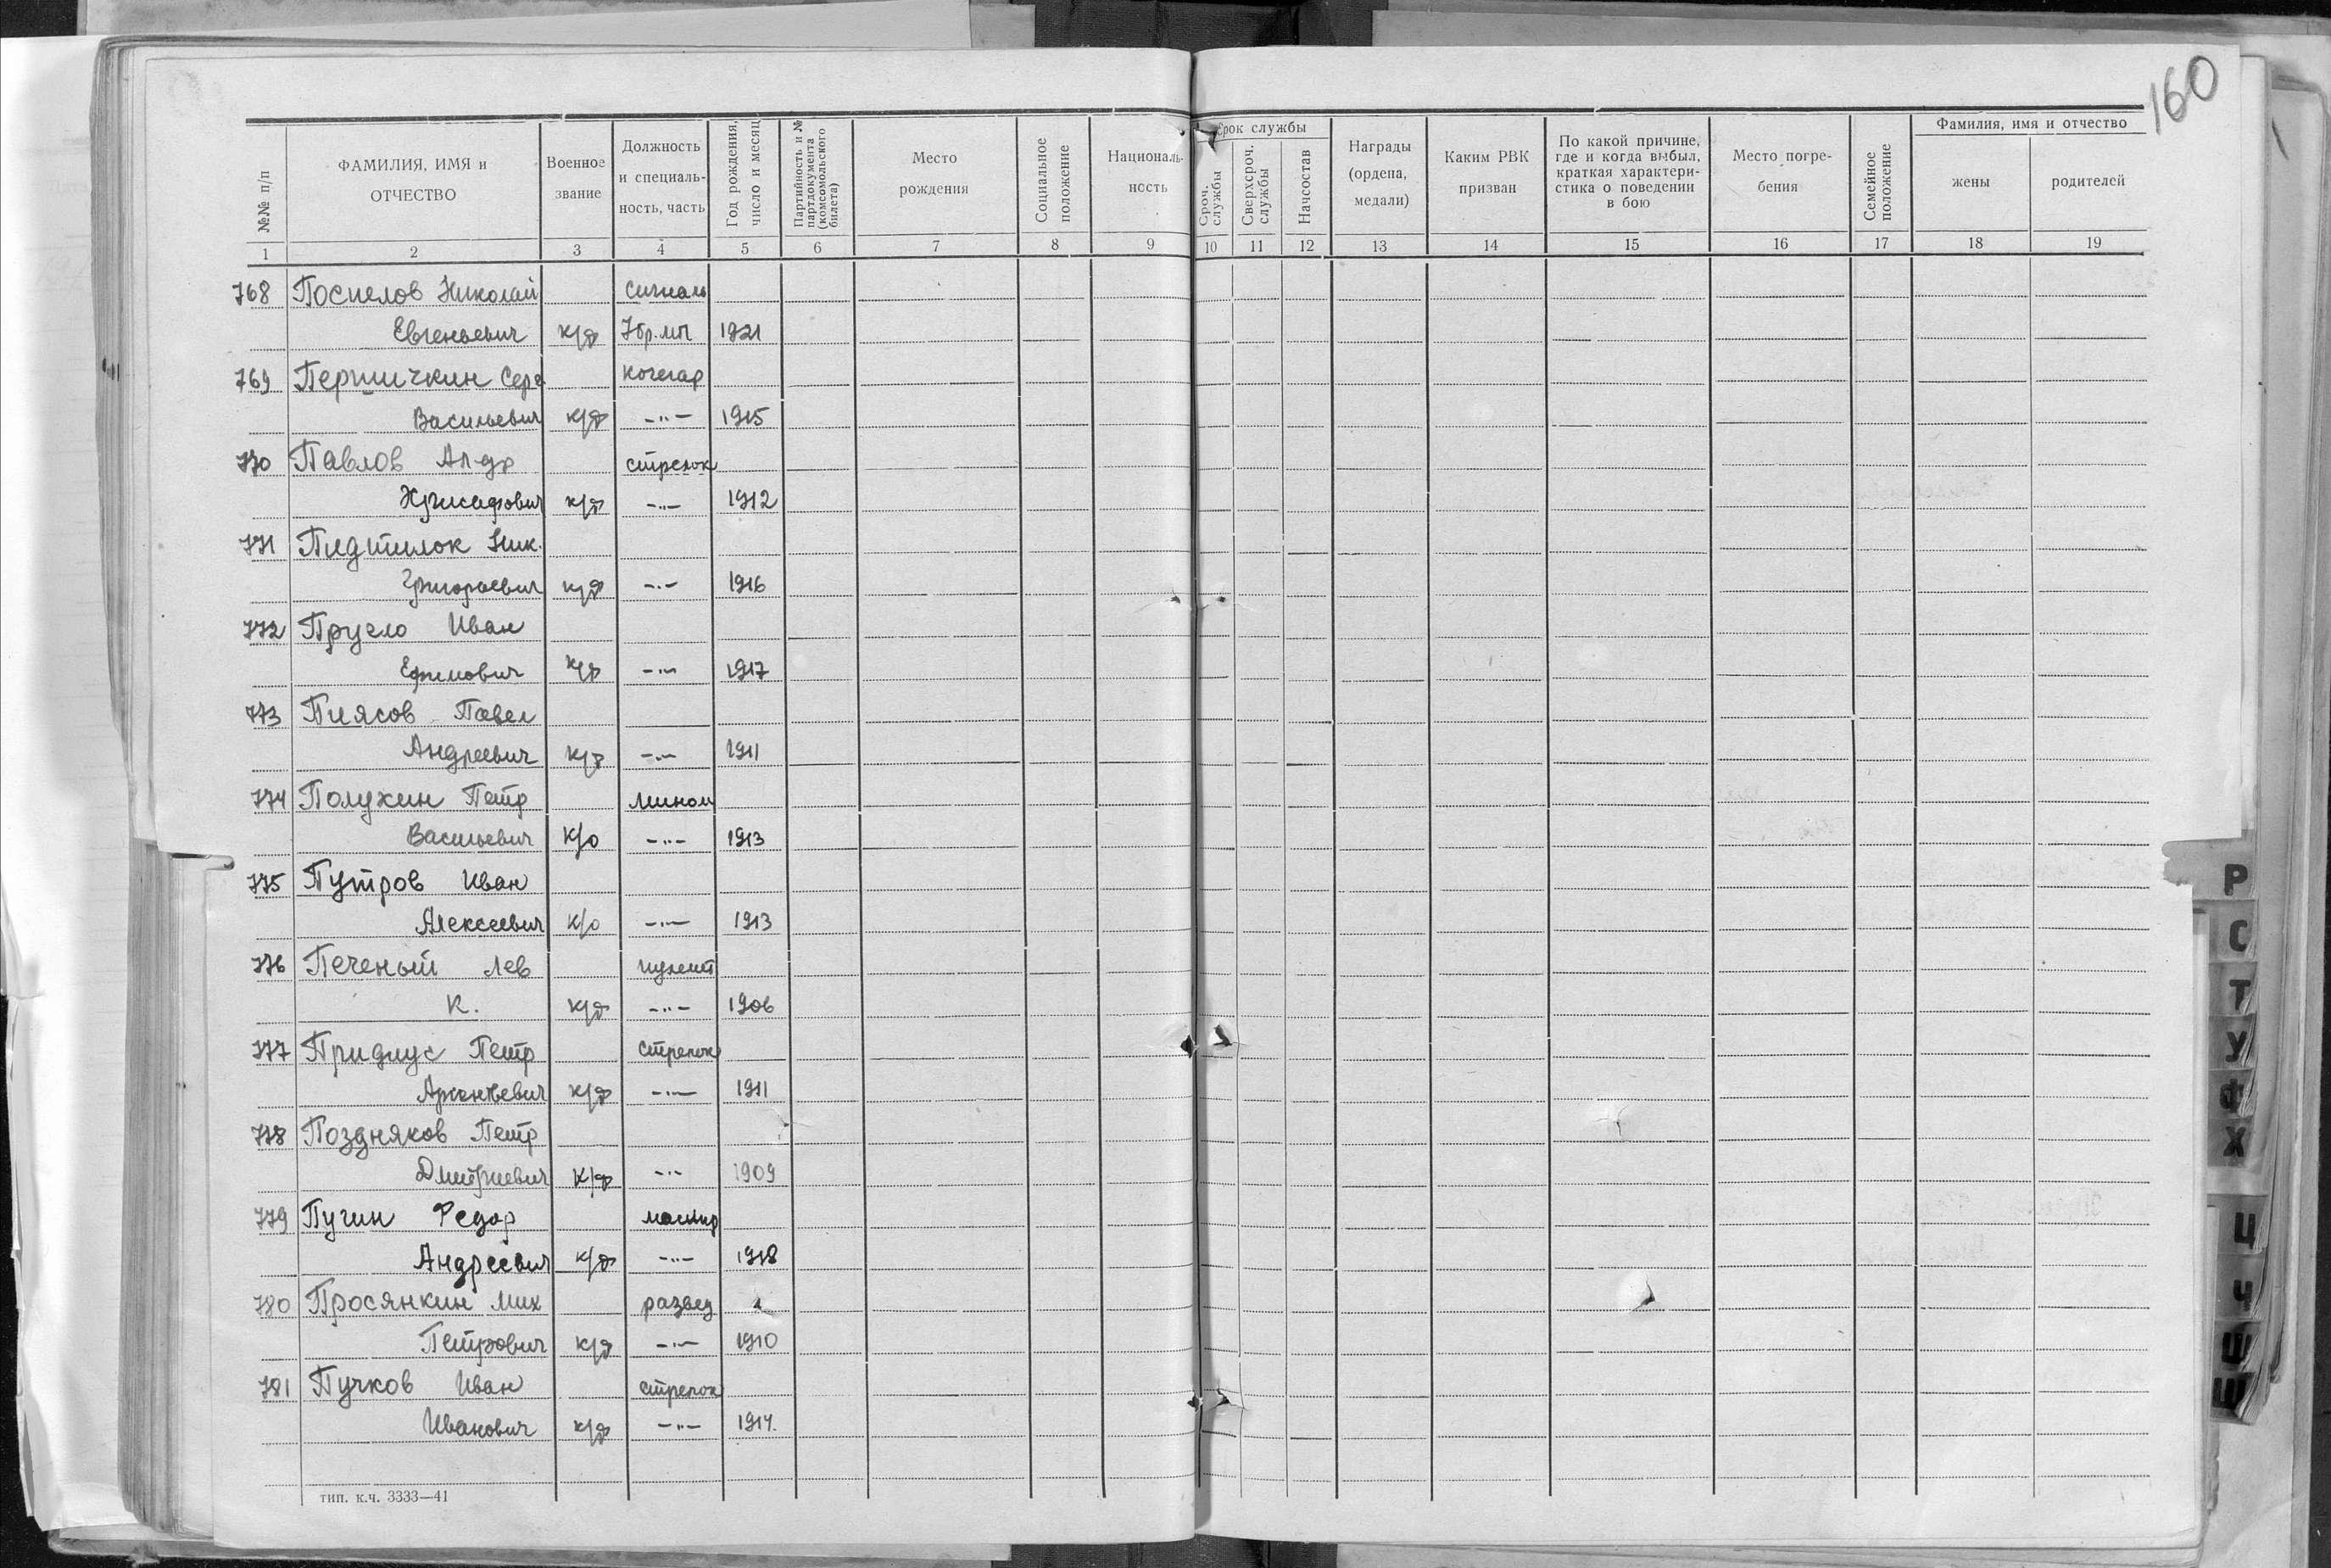 160
№№ п/п
ФАМИЛИЯ, ИМЯ и ОТЧЕСТВО
Военное звание
Должность и специальность, часть
Год рождения, число и месяц
Партийность и № партдокумента (комсомольского билета)
Место рождения
Социальное положение
Националь- ность
Срок службы
Сроч. службы
Сверхсроч. службы
Начсостав
Награды (ордена, медали)
Каким РВК призван
По какой причине, где и когда выбыл, краткая характери- стика о поведении в бою
Место погре- бения
Семейное положение
Фамилия, имя и отчество
жены
родителей
1 2 3 4 5 6 7 8 9 10 11 12 13 14 15 16 17 18 19
768 Поспелов Николай сигналь
Евгеньевич к/ф 7бр.мп 1921
769 Першичкин Серг кочегар
Васильевич к/ф -"- 1915
770 Павлов Ал-др стрелок
Хрисафович к/ф -"- 1912
771 Ник.
Григорьевич к/ф -"- 1916
772 Иван
Ефимович к/ф -"- 1917
773 Павел
Андреевич к/ф -"- 1911
774 Полухин Петр мином
Васильевич к/о -"- 1913
775 Путров Иван
Алексеевич к/о -"- 1913
776 Печеный Лев пулемет
К. к/ф -"- 1906
777 Придиус Петр стрелок
к/ф -"- 1911
778 Поздняков Петр
Дмитриевич к/ф -"- 1909
779 Пугин Федор
Андреевич к/ф -"- 1918
780 Просянкин Мих развед
Петрович к/ф -"- 1910
781 Пучков Иван стрелок
Иванович к/ф -"- 1914.
тип. к.ч. 3333—41
Р
С
Т
У
Ф
Х
Ц
Ч
Ш
Щ